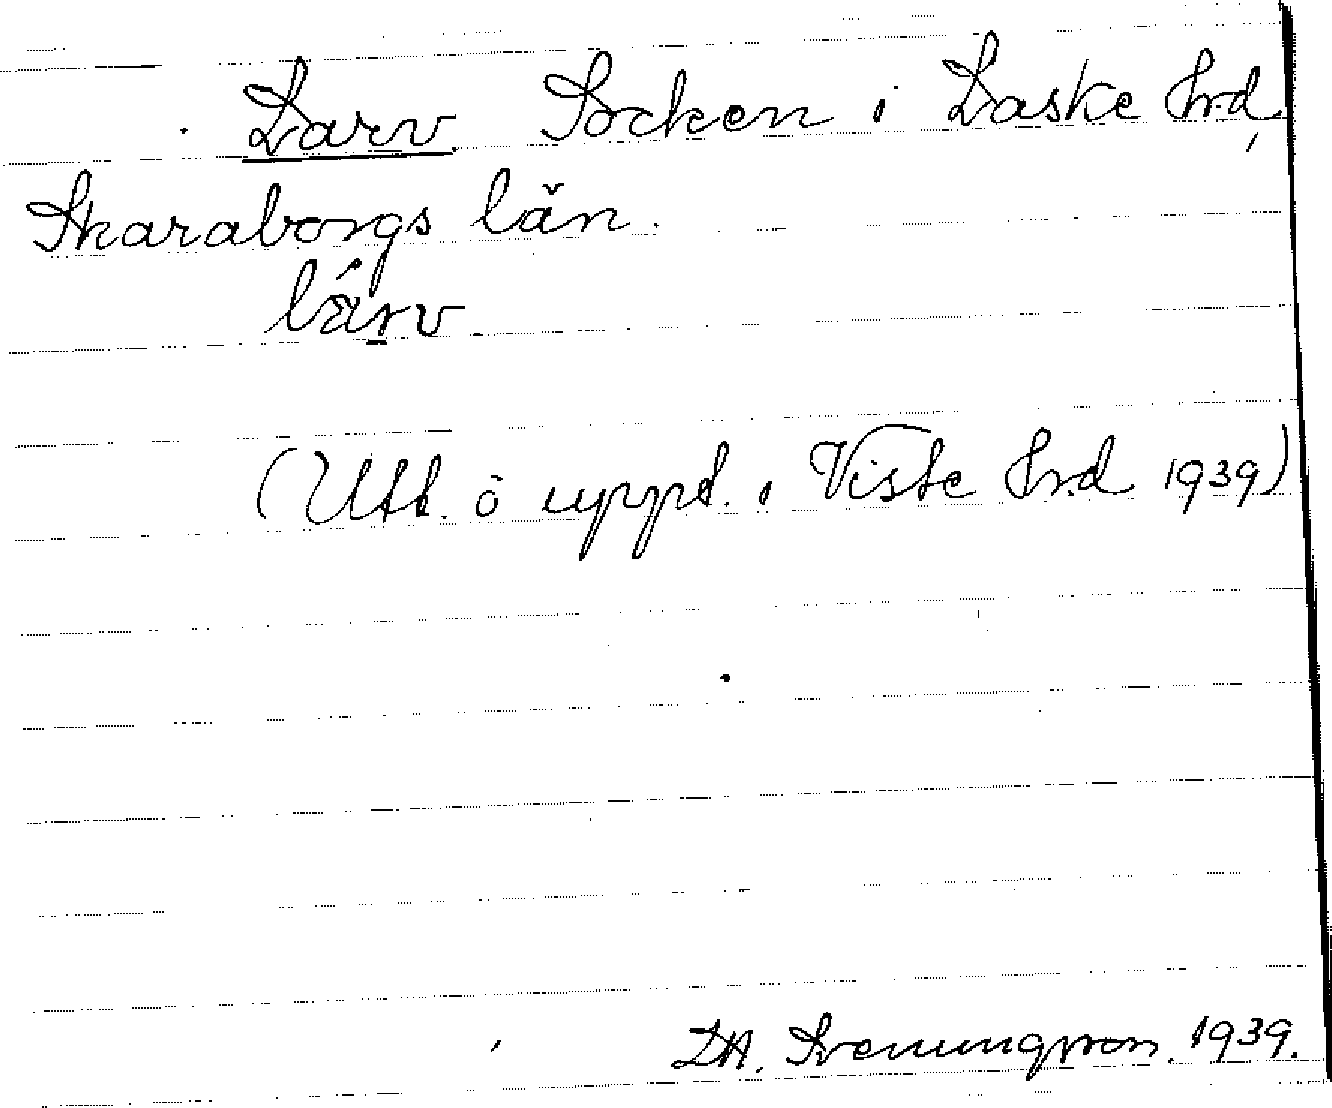 Larv. Socken i Laske hrd,
Skaraborgs län.
lárv
(Utt. o uppt. i Viste hrd 1939)
D.A. Svenungsson. 1939.